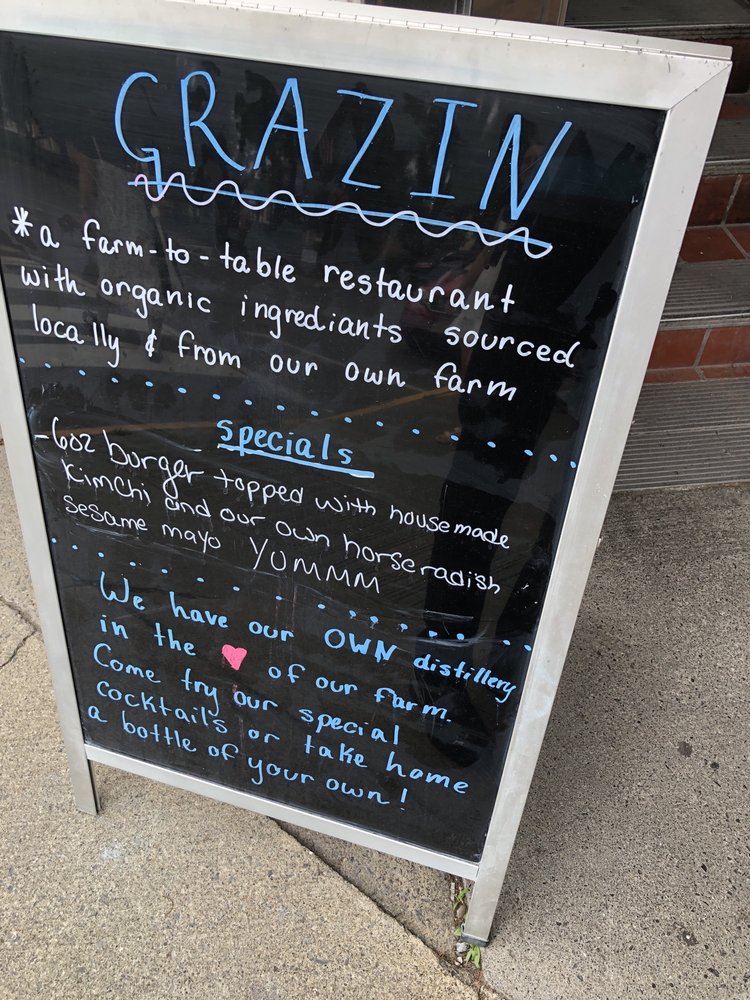 GRAZIN
*a farm-to-table restaurant
with organic ingrediants sourced
locally & from our own farm
specials
-6oz burger topped with housemade
Kimchi and our own horseradish
sesame mayo YUMMM
We have our OWN distillery
in the ♥ of our farm.
Come try our special
cocktails or take home
a bottle of your own!